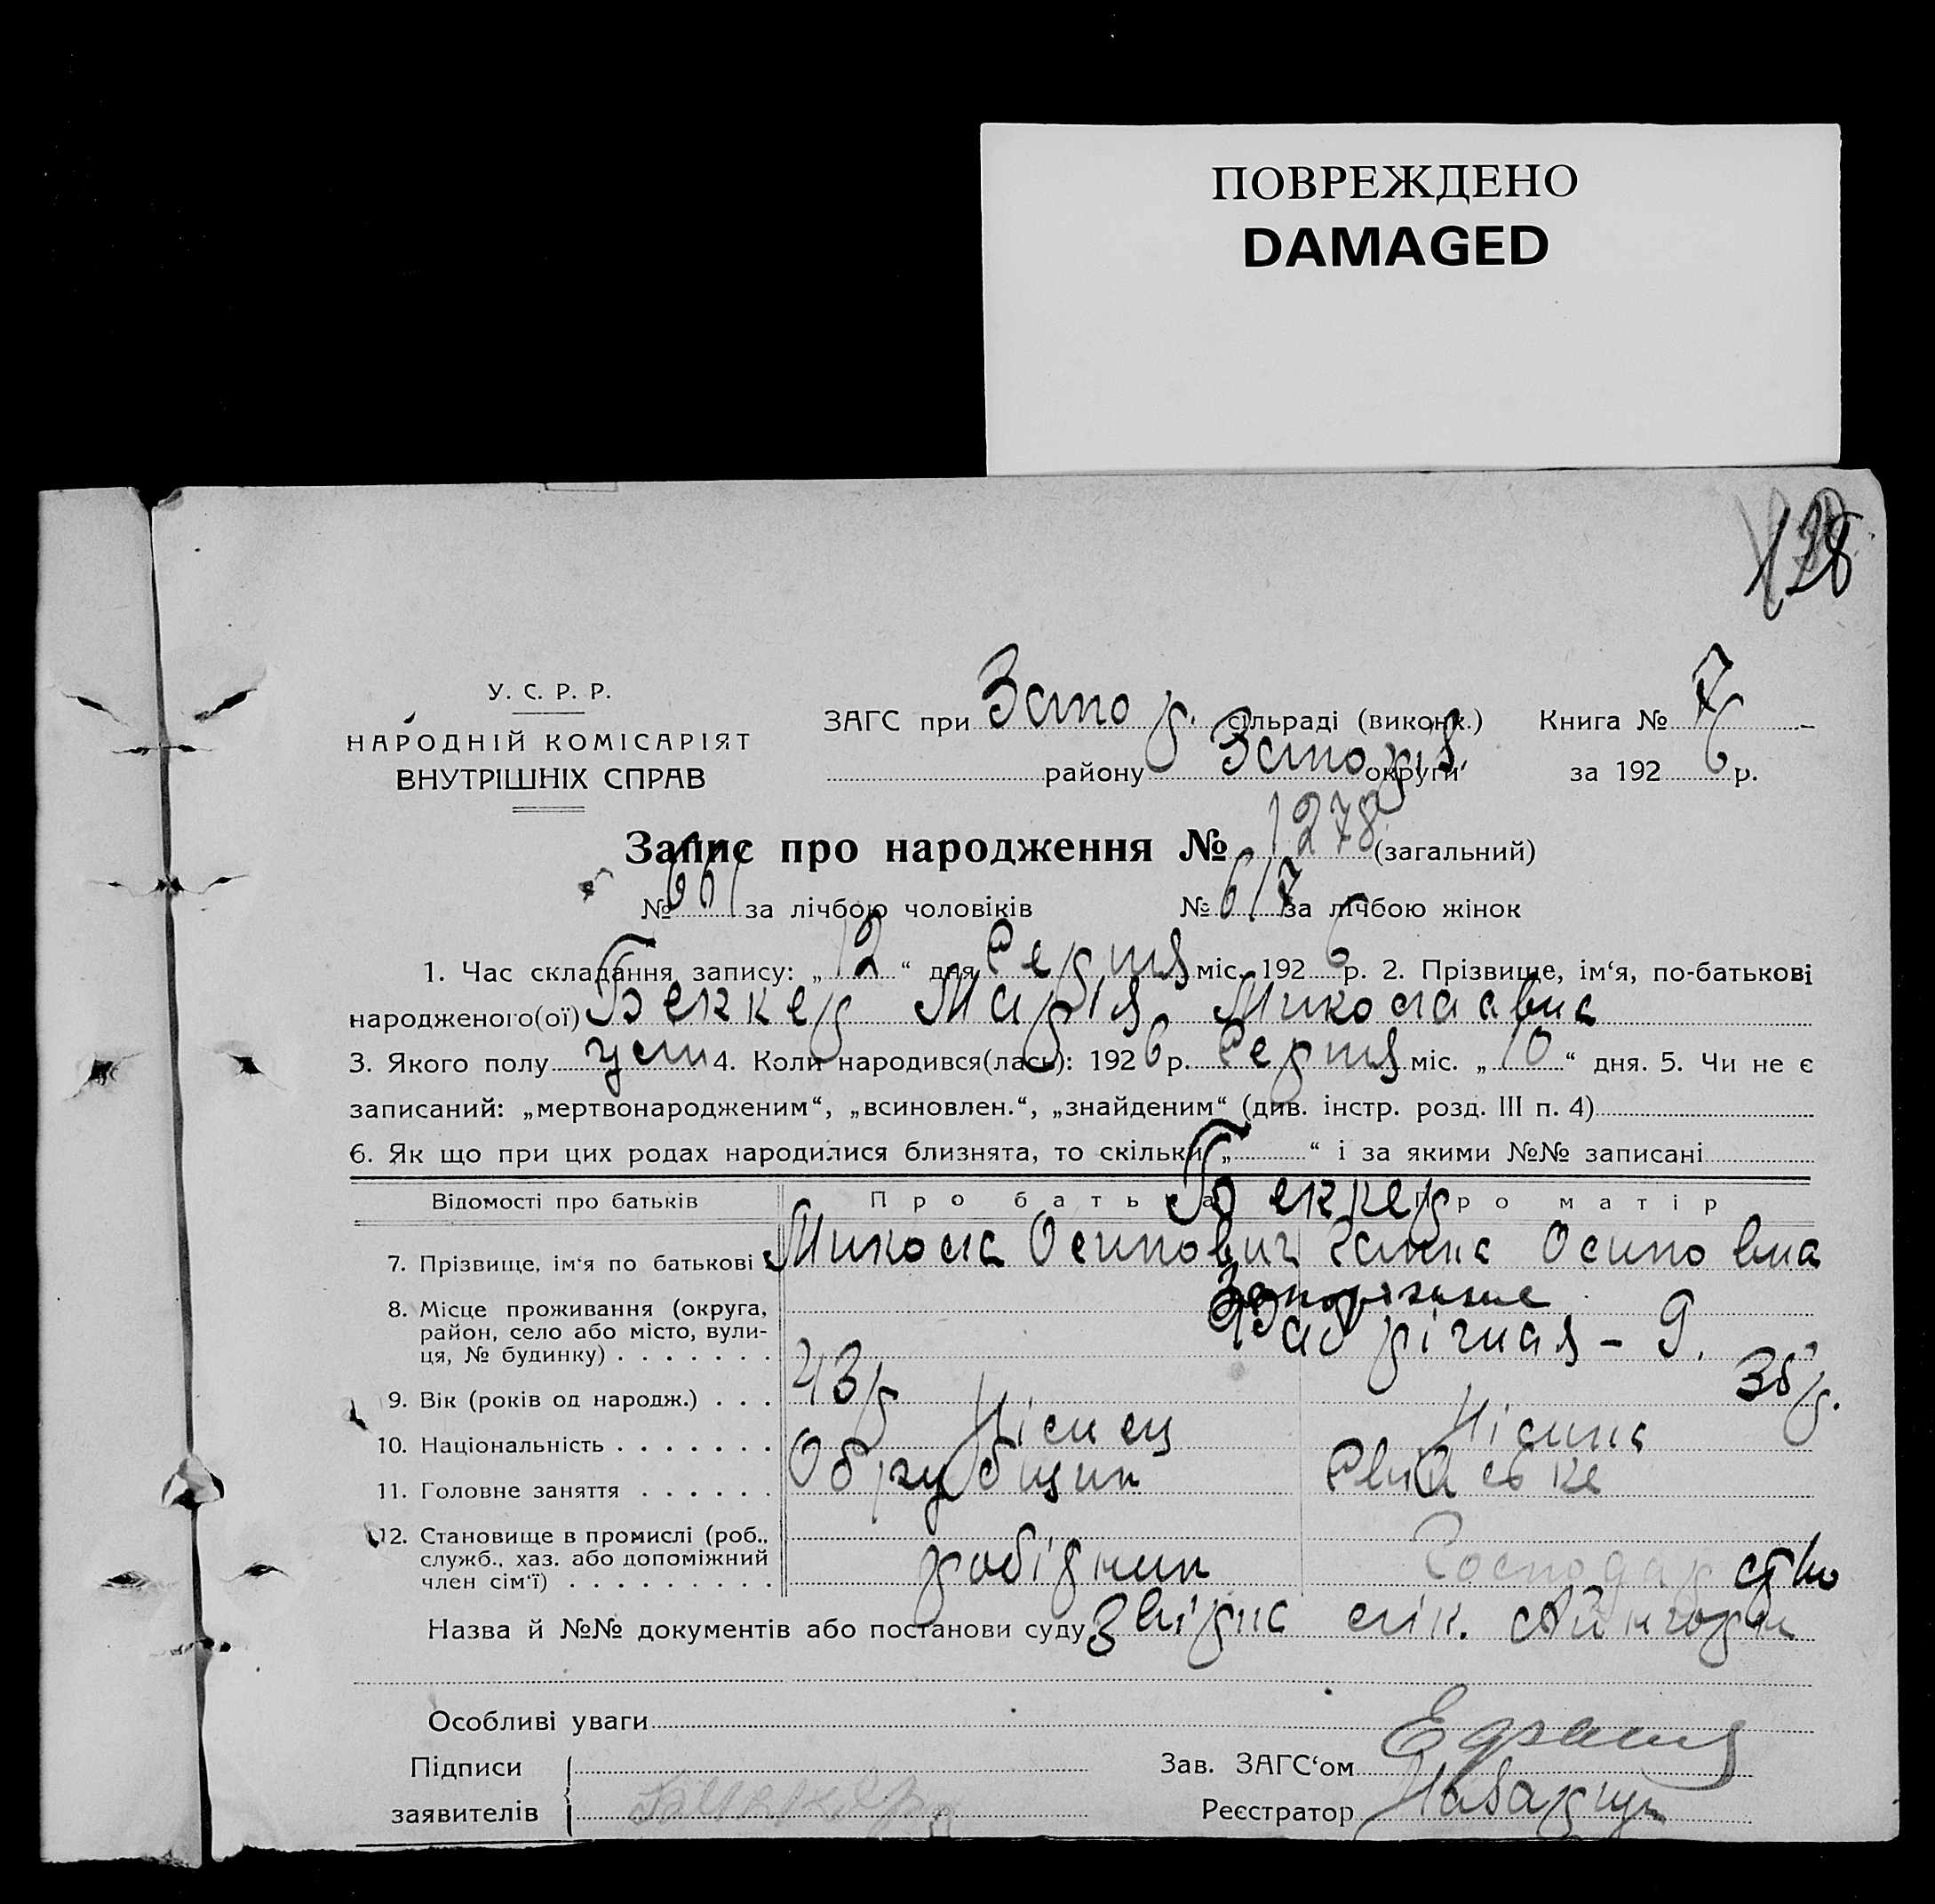 ПОВРЕЖДЕНО
DAMAGED
128
У. С. Р. Р.
НАРОДНІЙ КОМІСАРІЯТ
ВНУТРІШНІХ СПРАВ
ЗАГС при Запор. сільраді (виконк.) Книга № 7
району Запоріз. округи за 1926 р.
Запис про народження № 1278 (загальний)
№ 661 за лічбою чоловіків № 617 за лічбою жінок
1. Час складання запису: „12“ дня Серпня міс. 1926 р. 2. Прізвище, ім‘я, по-батькові
народженого(ої) Беккер Марія Миколаавна
3. Якого полу 4. Коли народився(лась): 1926 р. Серпня міс. „10“ дня. 5. Чи не є
записаний: „мертвонародженим“, „всиновлен.“, „знайденим“ (див. інстр. розд. III п. 4)
6. Як що при цих родах народилися близнята, то скільки „ “ і за якими №№ записані
Відомості про батьків Про батька Про матір
Беккер
7. Прізвище, ім‘я по батькові Микола Осипович Ганна Осиповна
8. Місце проживання (округа,
район, село або місто, вули-
ця, № будинку) Запоріжже
Фабрічная – 9.
9. Вік (років од народж.) 43 р 38 р.
10. Національність Німец Німка
11. Головне заняття Обрубщик Сельське
12. Становище в промислі (роб.,
служб., хаз. або допоміжний
член сім‘ї) робірник Господарство
Назва й №№ документів або постанови суду лік.
Особливі уваги
Підписи
заявителів
Зав. ЗАГС‘ом
Реєстратор